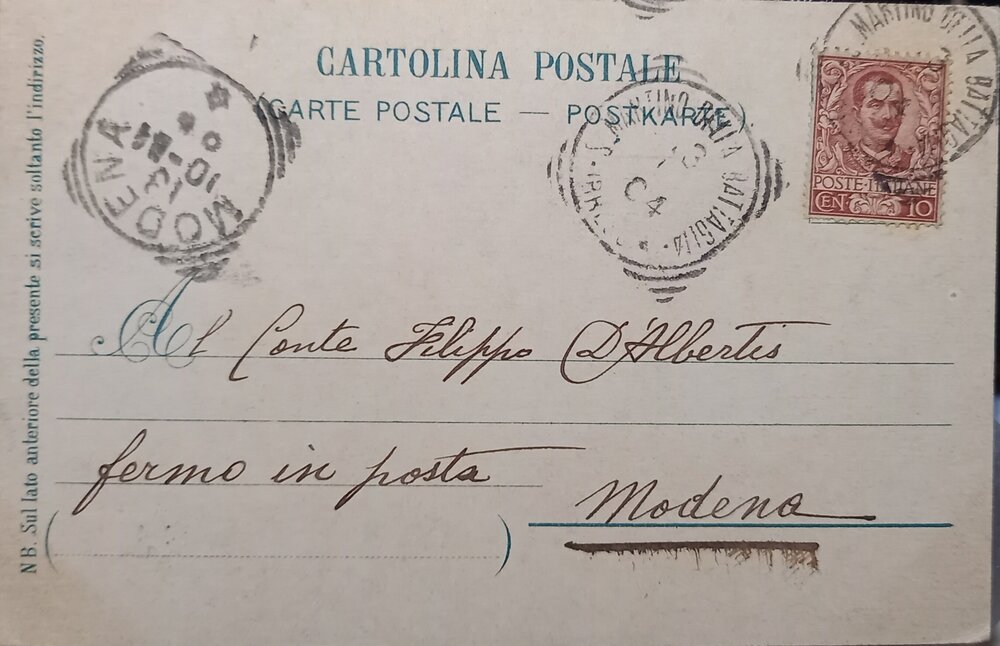 CARTOLINA POSTALE
(CARTE POSTALE — POSTKARTE)
MARTINO DELLA BATTAGLIA
MARTINO DELLA BATTAGLIA
04
MODENA
13
10-
MODENA
POSTE·ITALIANE
CEN. 10
Al Conte Filippo D'Albertis
fermo in posta
Modena
NB. Sul lato anteriore della presente si scrive soltanto l'indirizzo.